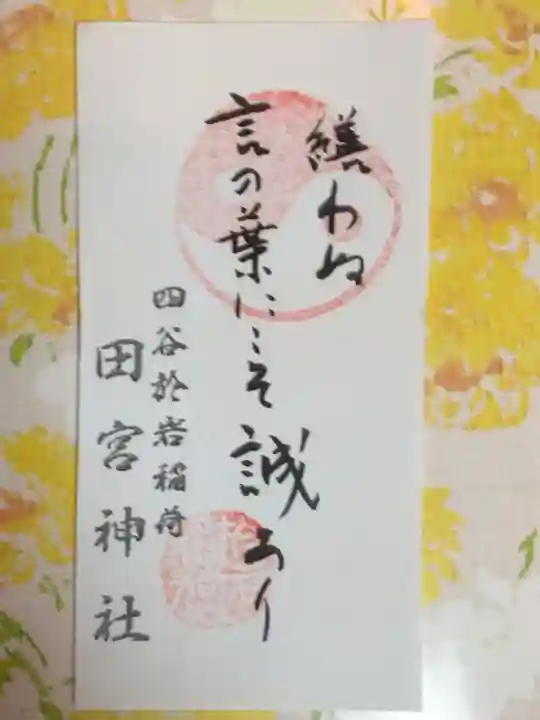 繕わぬ
言の葉にこそ誠あり
四谷於岩稲荷
田宮神社